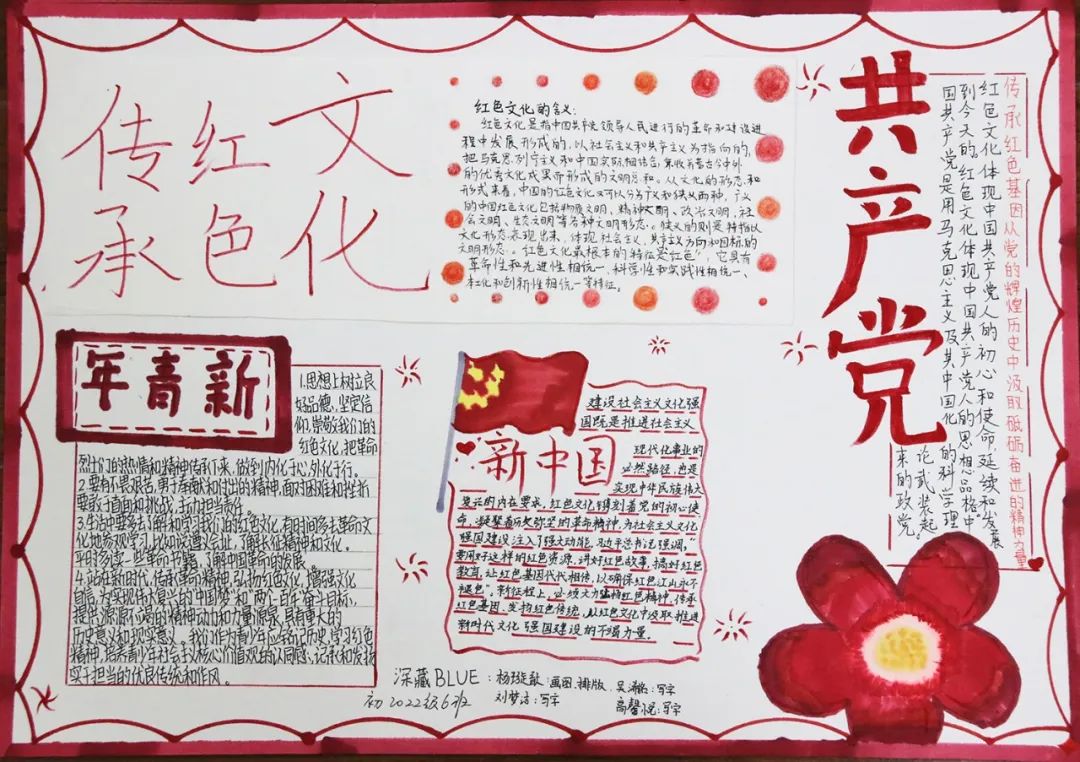 传承
红色
文化
红色文化的含义:
红色文化是指中国共产党领导人民进行的革命和建设进
程中发展形成的,以社会主义和共产主义为指向的,
把马克思、列宁主义和中国实际相结合,兼收并蓄古今中外
的优秀文化成果而形成的文明总和。从文化的形态和
形式来看,中国的红色文化又可以分为广义和狭义两种,广义
的中国红色文化包括物质文明、精神文明、政治文明、社
会文明、生态文明等各种文明形态。狭义的则是特指以
文化形态表现出来,体现社会主义、共产主义方向和目标的
文明形态。红色文化最根本的特征是"红色",它具有
革命性和先进性相统一、科学性和实践性相统一、
本土化和创新性相统一等特征。
共产党
传承红色基因从党的辉煌历史中汲取砥砺奋进的精神力量
红色文化体现中国共产党人的初心和使命,延续和发展
到今天的红色文化体现中国共产党人的思想品格中
国共产党是用马克思主义及其中国化
的科学理
论武装起
来的政党。
新青年
1.思想上树立良
好品德,坚定信
仰,崇敬我们的
红色文化,把革命
烈士们的热情和精神传承下来,做到内化于心,外化于行。
2.要有不畏艰苦,勇于奉献和付出的精神,面对困难和挫折
要敢于直面和挑战,打代担当责任。
3.生活中要多去了解和学习我们的红色文化,有时间多去革命文
化地参观学习,比如说遵义会议,了解长征精神和文化。
平时多读一些革命书籍,了解中国革命的发展。
4.站在新时代,传承革命精神,弘扬红色文化,增强文化
自信,为实现伟大复兴的中国梦和"两个百年"奋斗目标,
提供源源不竭的精神动力和力量源泉,具有重大的
历史意义和现实意义。我们作为青少年应铭记历史,学习红色
精神,培养青少年社会主义核心价值观的认同感,记承和发扬
实干担当的优良传统和作风。
新中国
建设社会主义文化强
国既是推进社会主义
现代化事业的
必然路径,也是
实现中华民族伟大
复兴的内在要求,红色文化镌刻着党的初心使
命,凝聚着历久弥坚的革命精神,为社会主义文化
强国建设注入了强大动能。习近平总书记强调,"
要用好这样的红色资源,讲好红色故事,搞好红色
教育,让红色基因代代相传,以确保红色江山永不
褪色"。新征程上,必须大力弘扬红色精神,传承
红色基因、发扬红色传统,从红色文化中汲取推进
新时代文化强国建设的不竭力量。
深藏BLUE:
画图、排版、
写字
初2022级6班
刘梦洁:写字
写字